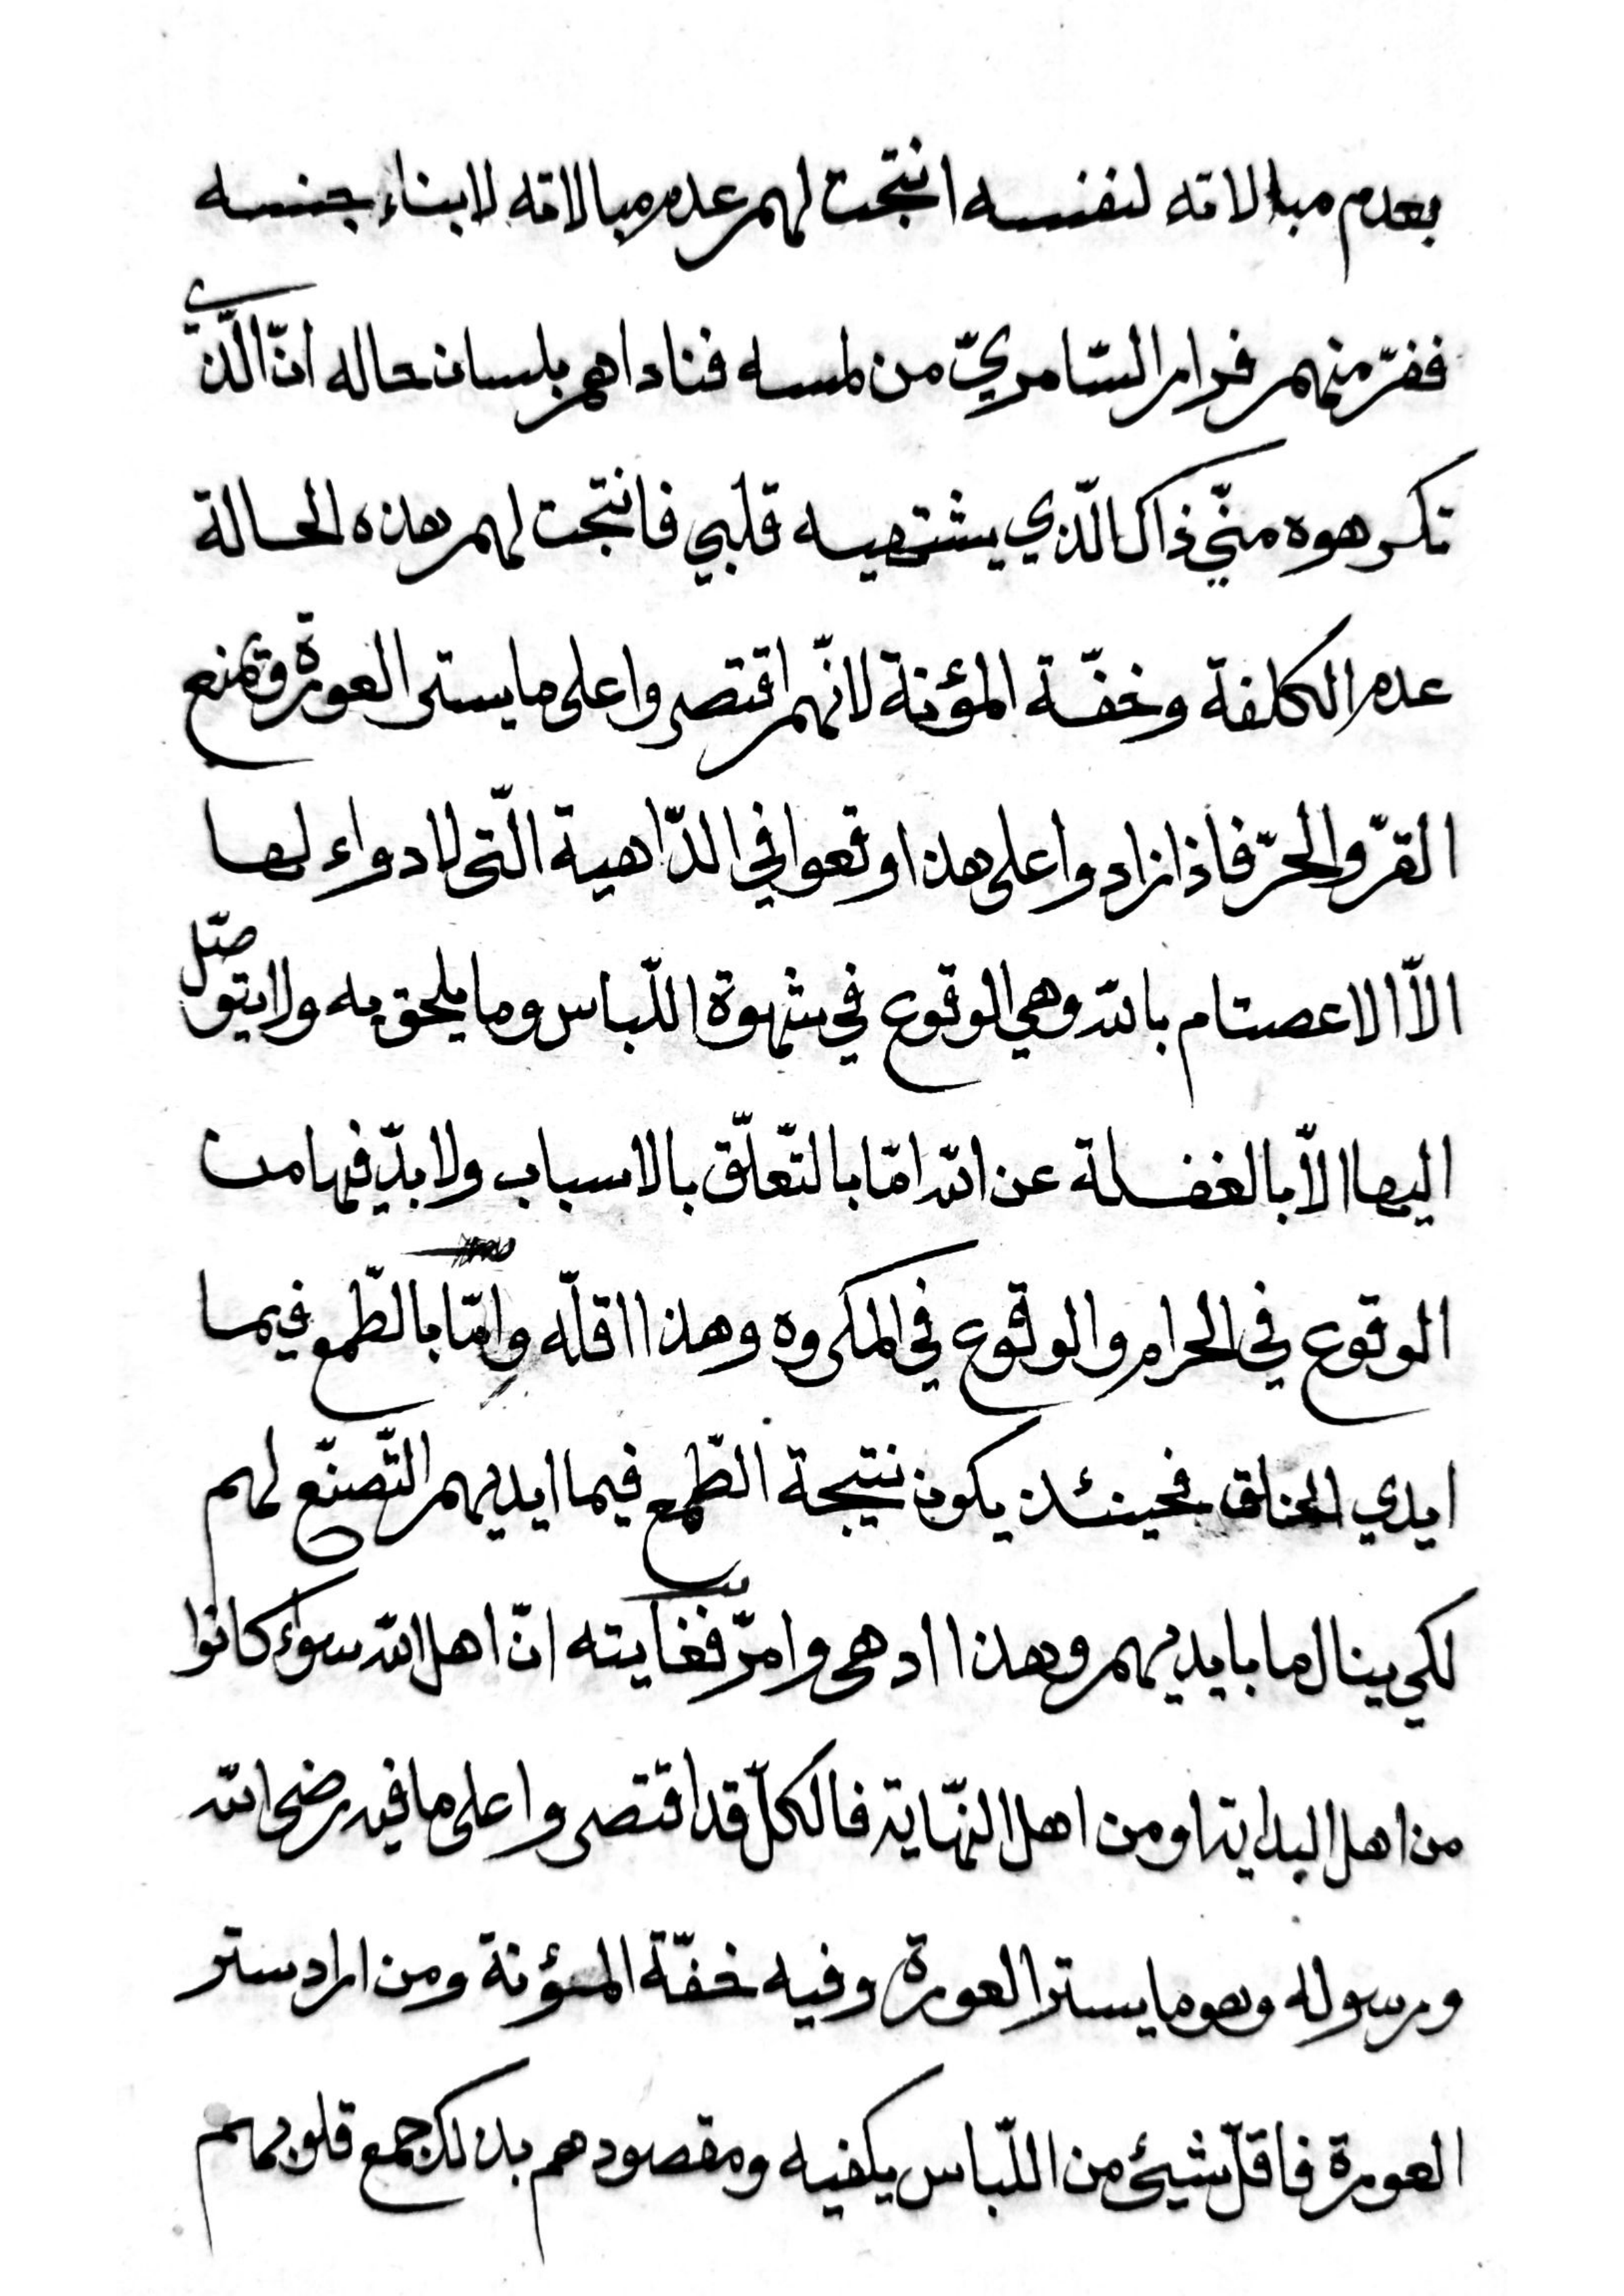 بعدم مبالاته لنفسه انتجت لهم عدم مبالاته لابناء جنسه
ففرّ منهم فرار السّامريّ من لمسه فناداهم بلسان حاله انّ الّذي
تكرهوه منّي ذاك الّذي يشتهيه قلبي فانتجت لهم هذه الحالة
عدم الكلفة وخفّة المؤنة لانّهم اقتصروا على ما يستر العورة ويمنع
القرّ والحرّ فاذا زادوا على هذا وقعوا في الدّاهية الّتى لا دواء لها
الاّ الاعصتام بالله وهي الوقوع في شهوة اللّباس وما يلحق به ولا يتوصّل
اليها الاّ بالغفلة عن الله امّا بالتّعلّق بالاسباب ولا بدّ فيها من
الوقوع في الحرام والوقوع في المكروه وهذا اقلّه وامّا بالطّمع فيما
ايدي الخلق فحينئذ يكون نتيجة الطّمع فيما ايديهم التّصنّع لهم
لكي ينال ما بايديهم وهذا ادهى وامرّ فغايته انّ اهل الله سواء كانوا
من اهل البداية او من اهل النّهاية فالكلّ قد اقتصروا على ما فيه رضى الله
ورسوله وهو ما يستر العورة وفيه خفّة المئونة ومن اراد ستر
العورة فاقلّ شيئ من اللّباس يكفيه ومقصودهم بذلك جمع قلوبهم